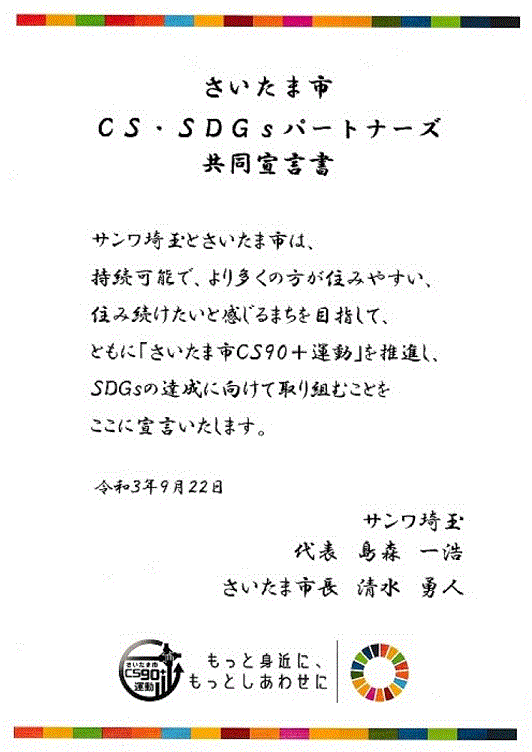 さいたま市
CS・SDGsパートナーズ
共同宣言書
サンワ埼玉とさいたま市は、
持続可能で、より多くの方が住みやすい、
住み続けたいと感じるまちを目指して、
ともに「さいたま市CS90＋運動」を推進し、
SDGsの達成に向けて取り組むことを
ここに宣言いたします。
令和3年9月22日
サンワ埼玉
代表 島森 一浩
さいたま市長 清水 勇人
さいたま市
CS90+
運動
もっと身近に、
もっとしあわせに